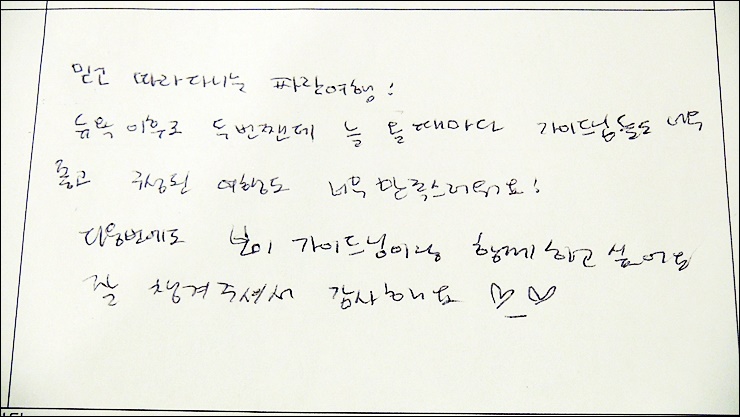 믿고 따라다니는 파란여행!
뉴욕 이후로 두번짼데 늘 올때마다 가이드님들도 너무
좋고 구성된 여행도 너무 만족스러워요!
다음번에도 보미 가이드님이랑 함께하고 싶어요
잘 챙겨주셔서 감사해요